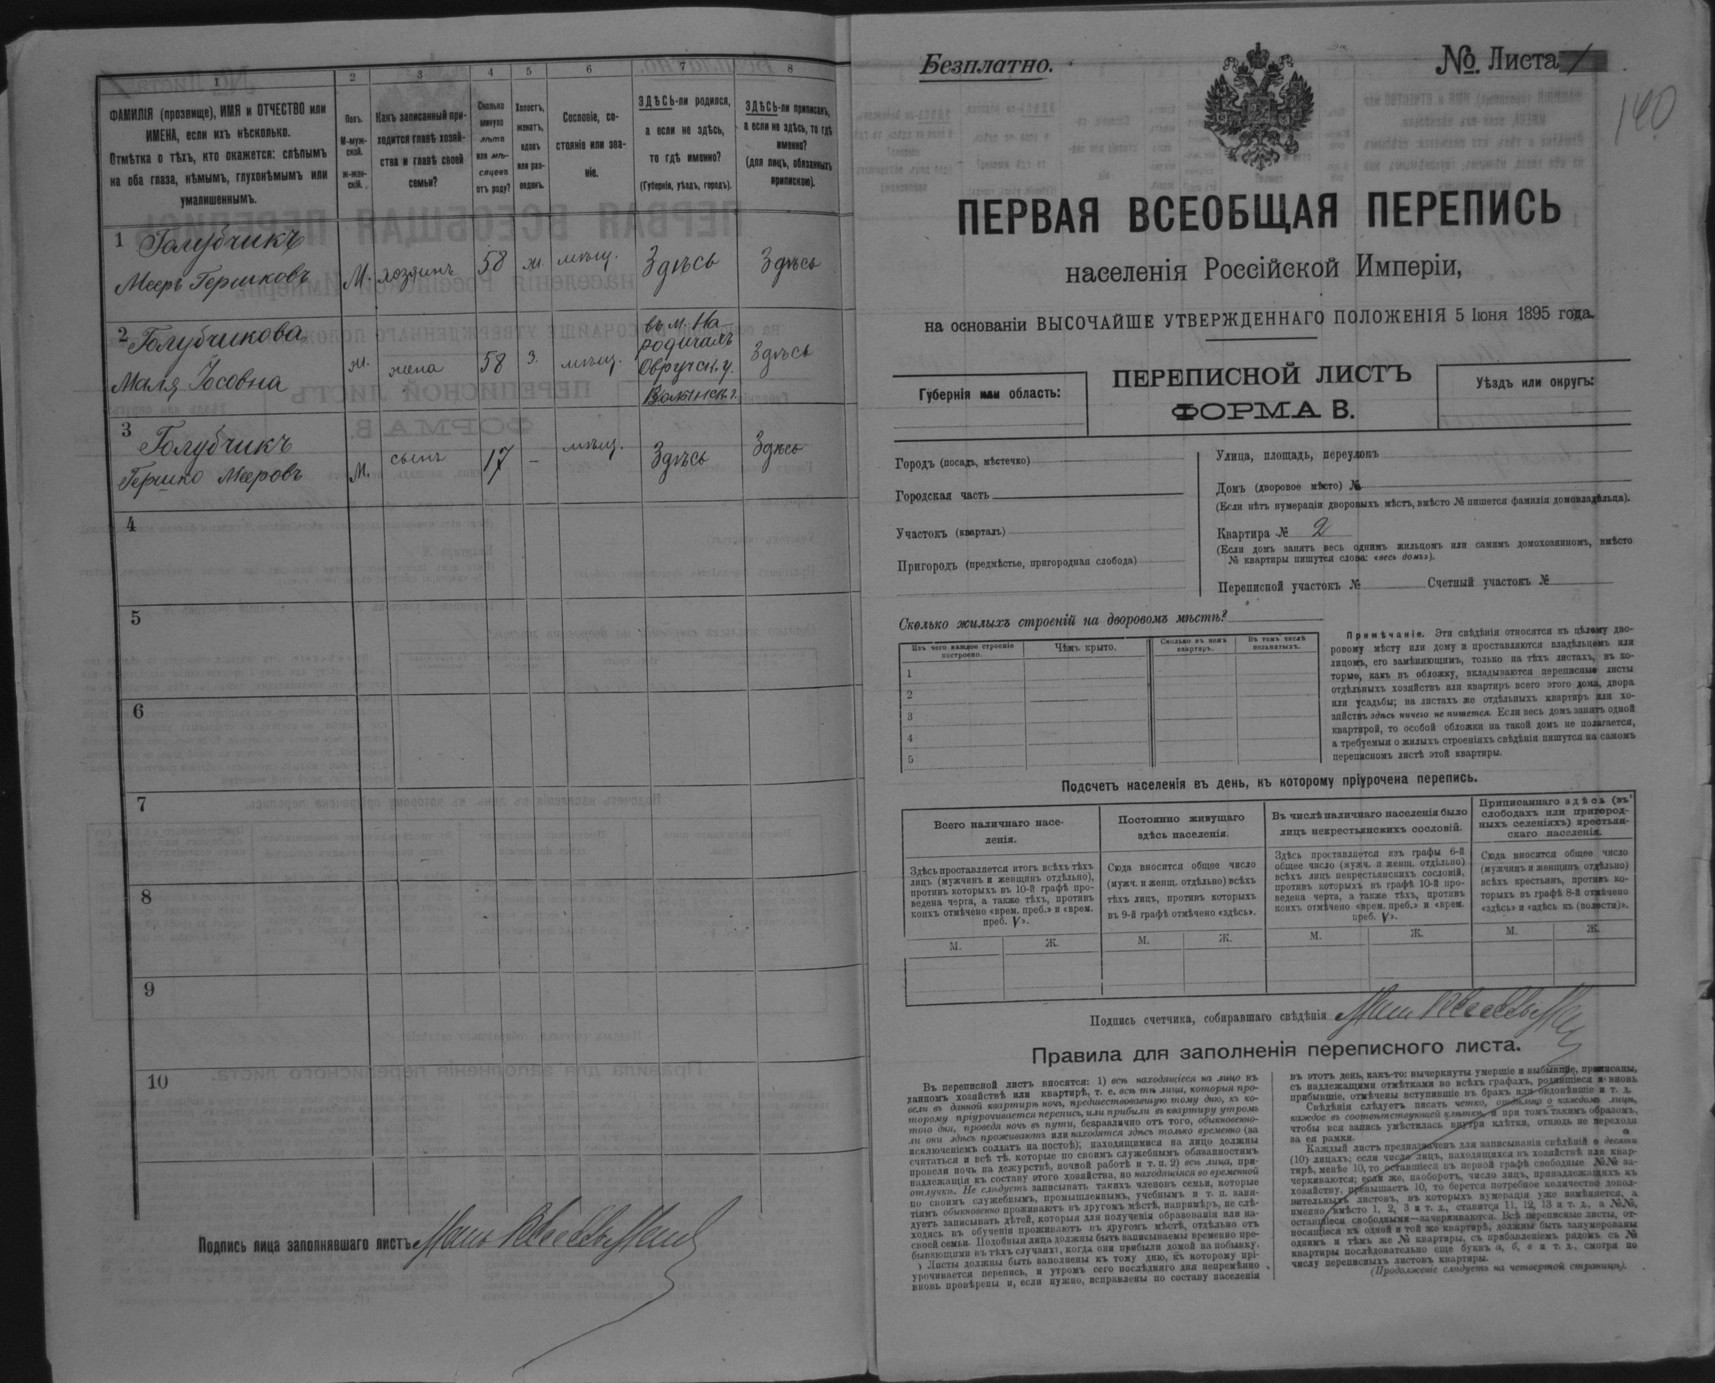 1
2
3
4
5
6
7
8
ФАМИЛІЯ (прозвище), ИМЯ и ОТЧЕСТВО или
ИМЕНА, если ихъ нѣсколько.
Отмѣтка о тѣхъ, кто окажется: слѣпымъ
на оба глаза, нѣмымъ, глухонѣмымъ или
умалишеннымъ.
Полъ.
М-муж-
ской.
ж-жен-
скій.
Какъ записанный при-
ходится главѣ хозяй-
ства и главѣ своей
семьи?
Сколько
минуло
лѣтъ
или мѣ-
сяцевъ
отъ роду?
Холостъ,
женатъ,
вдовъ
или раз-
веденъ.
Сословіе, со-
стояніе или зва-
ніе.
ЗДѢСЬ-ли родился,
а если не здѣсь,
то гдѣ именно?
(Губернія, уѣздъ, городъ).
ЗДѢСЬ-ли приписанъ,
а если не здѣсь, то гдѣ
именно?
(для лицъ, обязанныхъ
припискою).
1 Голубчикъ
Мееръ Гершковъ
М.
хозяинъ
58
ж.
мѣщ.
Здѣсь
Здѣсь
2 Голубчикова
Маля Іосовна
ж.
жена
58
з.
мѣщ.
въ м. На-
родичахъ
Овручск. у.
Волынск. г.
Здѣсь
3 Голубчикъ
Гершко Мееровъ
М.
сынъ
17
-
мѣщ.
Здѣсь
Здѣсь
4
5
6
7
8
9
10
Подпись лица заполнявшаго листъ
Безплатно.
№ Листа 1
140
ПЕРВАЯ ВСЕОБЩАЯ ПЕРЕПИСЬ
населенія Россійской Имперіи,
на основаніи ВЫСОЧАЙШЕ УТВЕРЖДЕННАГО ПОЛОЖЕНІЯ 5 Іюня 1895 года.
Губернія или область:
ПЕРЕПИСНОЙ ЛИСТЪ
ФОРМА В.
Уѣздъ или округъ:
Городъ (посадъ, мѣстечко)
Городская часть
Участокъ (кварталъ)
Пригородъ (предмѣстье, пригородная слобода)
Улица, площадь, переулокъ
Домъ (дворовое мѣсто) №
(Если нѣтъ нумераціи дворовыхъ мѣстъ, вмѣсто № пишется фамилія домовладѣльца).
Квартира № 2
(Если домъ занятъ весь однимъ жильцомъ или самимъ домохозяиномъ, вмѣсто
№ квартиры пишутся слова: «весь домъ»).
Переписной участокъ № Счетный участокъ №
Сколько жилыхъ строеній на дворовомъ мѣстѣ?
Изъ чего каждое строеніе
построено.
Чѣмъ крыто.
Сколько въ немъ
квартиръ.
Въ томъ числѣ
незанятыхъ.
1
2
3
4
5
Примѣчаніе. Эти свѣдѣнія относятся къ цѣлому дво-
ровому мѣсту или дому и проставляются владѣльцемъ или
лицомъ, его замѣняющимъ, только на тѣхъ листахъ, въ ко-
торые, какъ въ обложку, вкладываются переписные листы
отдѣльныхъ хозяйствъ или квартиръ всего этого дома, двора
или усадьбы; на листахъ же отдѣльныхъ квартиръ или хо-
зяйствъ здѣсь ничего не пишется. Если весь домъ занятъ одной
квартирой, то особой обложки на такой домъ не полагается,
а требуемыя о жилыхъ строеніяхъ свѣдѣнія пишутся на самомъ
переписномъ листѣ этой квартиры.
Подсчетъ населенія въ день, къ которому пріурочена перепись.
Всего наличнаго насе-
ленія.
Постоянно живущаго
здѣсь населенія.
Въ числѣ наличнаго населенія было
лицъ некрестьянскихъ сословій.
Приписаннаго здѣсь (въ
слободахъ или пригород-
ныхъ селеніяхъ) крестьян-
скаго населенія.
Здѣсь проставляется итогъ всѣхъ тѣхъ
лицъ (мужчинъ и женщинъ отдѣльно),
противъ которыхъ въ 10-й графѣ про-
ведена черта, а также тѣхъ, противъ
коихъ отмѣчено «врем. преб.» и «врем.
преб. V».
Сюда вносится общее число
(мужч. и женщ. отдѣльно) всѣхъ
тѣхъ лицъ, противъ которыхъ
въ 9-й графѣ отмѣчено «здѣсь».
Здѣсь проставляется изъ графы 6-й
общее число (мужч. и женщ. отдѣльно)
всѣхъ лицъ некрестьянскихъ сословій,
противъ которыхъ въ графѣ 10-й про-
ведена черта, а также тѣхъ, противъ
коихъ отмѣчено «врем. преб.» и «врем.
преб. V».
Сюда вносится общее число
(мужчинъ и женщинъ отдѣльно)
всѣхъ крестьянъ, противъ ко-
торыхъ въ графѣ 8-й отмѣчено
«здѣсь» и «здѣсь къ (волости)».
М. Ж. М. Ж. М. Ж. М. Ж.
Подпись счетчика, собиравшаго свѣдѣнія
Правила для заполненія переписного листа.
Въ переписной листъ вносятся: 1) всѣ находящіеся на лицо въ
данномъ хозяйствѣ или квартирѣ, т. е. всѣ тѣ лица, которыя про-
вели въ данной квартирѣ ночь, предшествовавшую тому дню, къ ко-
торому пріурочивается перепись, или прибыли въ квартиру утромъ
того дня, проведя ночь въ пути, безразлично отъ того, обыкновенно-
ли они здѣсь проживаютъ или находятся здѣсь только временно (за
исключеніемъ солдатъ на постоѣ); находящимися на лицо должны
считаться и всѣ тѣ, которые по своимъ служебнымъ обязанностямъ
провели ночь на дежурствѣ, ночной работѣ и т. п. 2) всѣ лица, при-
надлежащія къ составу этого хозяйства, но находящіяся во временной
отлучкѣ. Не слѣдуетъ записывать такихъ членовъ семьи, которые
по своимъ служебнымъ, промышленнымъ, учебнымъ и т. п. заня-
тіямъ обыкновенно проживаютъ въ другомъ мѣстѣ, напримѣръ, не слѣ-
дуетъ записывать дѣтей, которыя для полученія образованія или на-
ходясь въ обученіи проживаютъ въ другомъ мѣстѣ, отдѣльно отъ
своей семьи. Подобныя лица должны быть записываемы временно пре-
бывающими въ тѣхъ случаяхъ, когда они прибыли домой на побывку.
Листы должны быть заполнены къ тому дню, къ которому прі-
урочивается перепись, и утромъ сего послѣдняго дня непремѣнно
вновь провѣрены и, если нужно, исправлены по составу населенія
въ этотъ день, какъ-то: вычеркнуты умершіе и выбывшіе, приписаны,
съ надлежащими отмѣтками во всѣхъ графахъ, родившіеся и вновь
прибывшіе, отмѣчены вступившіе въ бракъ или овдовѣвшіе и т. д.
Свѣдѣнія слѣдуетъ писать четко, отдѣльно о каждомъ лицѣ,
каждое въ соотвѣтствующей клѣткѣ, и при томъ такимъ образомъ,
чтобы вся запись умѣстилась внутри клѣтки, отнюдь не переходя
за ея рамки.
Каждый листъ предназначенъ для записыванія свѣдѣній о десяти
(10) лицахъ; если число лицъ, находящихся въ хозяйствѣ или квар-
тирѣ, менѣе 10, то оставшіеся въ первой графѣ свободные №№ за-
черкиваются; если же, наоборотъ, число лицъ, принадлежащихъ къ
хозяйству, превышаетъ 10, то берется потребное количество допол-
нительныхъ листовъ, въ которыхъ нумерація уже измѣняется, а
именно вмѣсто 1, 2, 3 и т. д., ставится 11, 12, 13 и т. д., а №№,
остающіеся свободными—зачеркиваются. Всѣ переписные листы, от-
носящіеся къ одной и той же квартирѣ, должны быть занумерованы
однимъ и тѣмъ же № квартиры, съ прибавленіемъ рядомъ съ №
квартиры послѣдовательно еще буквъ а, б, в и т. д., смотря по
числу переписныхъ листовъ квартиры.
(Продолженіе слѣдуетъ на четвертой страницѣ).